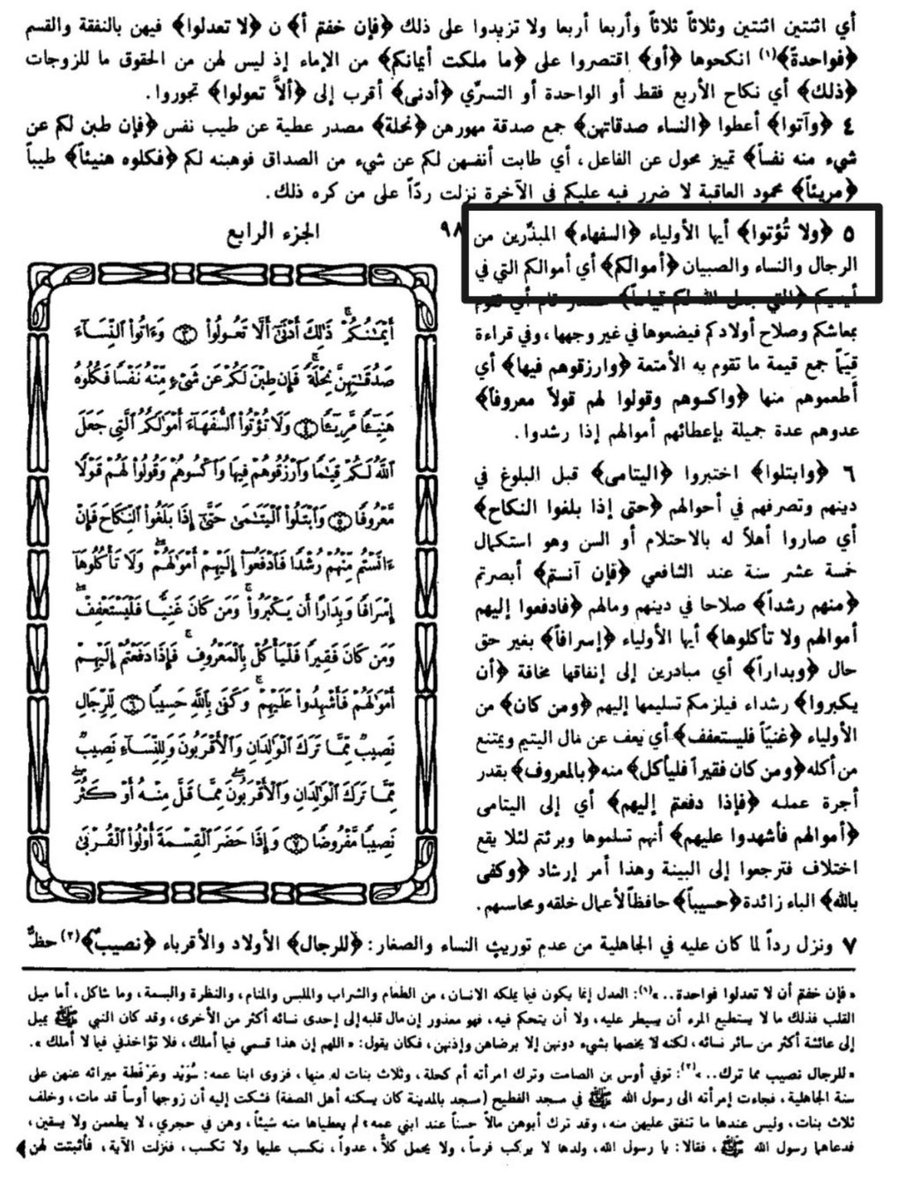 أي اثنتين اثنتين وثلاثاً ثلاثاً وأربعا أربعا ولا تزيدوا على ذلك ﴿فإن خفتم أ﴾ ن ﴿لا تعدلوا﴾ فيهن بالنفقة والقسم
﴿فواحدةً﴾(١) انكحوها ﴿أو﴾ اقتصروا على ﴿ما ملكت أيمانكم﴾ من الإماء إذ ليس لهن من الحقوق ما للزوجات
﴿ذلك﴾ أي نكاح الأربع فقط أو الواحدة أو التسرّي ﴿أدنى﴾ أقرب إلى ﴿ألاَّ تعولوا﴾ تجوروا.
٤ ﴿وآتوا﴾ أعطوا ﴿النساء صدقاتهن﴾ جمع صدقة مهورهن ﴿نحلة﴾ مصدر عطية عن طيب نفس ﴿فإن طبن لكم عن
شيء منه نفساً﴾ تمييز محول عن الفاعل، أي طابت أنفسهن لكم عن شيء من الصداق فوهبنه لكم ﴿فكلوه هنيئاً﴾ طيباً
﴿مريئاً﴾ محمود العاقبة لا ضرر فيه عليكم في الآخرة نزلت ردّاً على من كره ذلك.
٩٨
الجزء الرابع
٥ ﴿ولا تُؤتوا﴾ أيها الأولياء ﴿السفهاء﴾ المبذّرين من
الرجال والنساء والصبيان ﴿أموالكم﴾ أي أموالكم التي في
أيديكم ﴿التي جعل الله لكم قياماً﴾ مصدر قام أي تقوم
بمعاشكم وصلاح أولادكم فيضعوها في غير وجهها، وفي قراءة
قيَماً جمع قيمة ما تقوم به الأمتعة ﴿وارزقوهم فيها﴾ أي
أطعموهم منها ﴿واكسوهم وقولوا لهم قولاً معروفاً﴾
عدوهم عدة جميلة بإعطائهم أموالهم إذا رشدوا.
٦ ﴿وابتلوا﴾ اختبروا ﴿اليتامى﴾ قبل البلوغ في
دينهم وتصرفهم في أحوالهم ﴿حتى إذا بلغوا النكاح﴾
أي صاروا أهلاً له بالاحتلام أو السن وهو استكمال
خمسة عشر سنة عند الشافعي ﴿فإن آنستم﴾ أبصرتم
﴿منهم رشداً﴾ صلاحا في دينهم ومالهم ﴿فادفعوا إليهم
أموالهم ولا تأكلوها﴾ أيها الأولياء ﴿إسرافاً﴾ بغير حق
حال ﴿وبداراً﴾ أي مبادرين إلى إنفاقها مخافة ﴿أن
يكبروا﴾ رشداء فيلزمكم تسليمها إليهم ﴿ومن كان﴾ من
الأولياء ﴿غنيّاً فليستعفف﴾ أي يعف عن مال اليتيم ويمتنع
من أكله ﴿ومن كان فقيراً فليأكل﴾ منه ﴿بالمعروف﴾ بقدر
أجرة عمله ﴿فإذا دفعتم إليهم﴾ أي إلى اليتامى
﴿أموالهم فأشهدوا عليهم﴾ أنهم تسلموها وبرئتم لئلا يقع
اختلاف فترجعوا إلى البينة وهذا أمر إرشاد ﴿وكفى
بالله﴾ الباء زائدة ﴿حسيباً﴾ حافظاً لأعمال خلقه ومحاسبهم.
أَيْمَٰنُكُمْ ذَٰلِكَ أَدْنَىٰٓ أَلَّا تَعُولُوا۟ ٣ وَءَاتُوا۟ ٱلنِّسَآءَ
صَدُقَٰتِهِنَّ نِحْلَةً فَإِن طِبْنَ لَكُمْ عَن شَىْءٍ مِّنْهُ نَفْسًا فَكُلُوهُ
هَنِيٓـًٔا مَّرِيٓـًٔا ٤ وَلَا تُؤْتُوا۟ ٱلسُّفَهَآءَ أَمْوَٰلَكُمُ ٱلَّتِى جَعَلَ
ٱللَّهُ لَكُمْ قِيَٰمًا وَٱرْزُقُوهُمْ فِيهَا وَٱكْسُوهُمْ وَقُولُوا۟ لَهُمْ قَوْلًا
مَّعْرُوفًا ٥ وَٱبْتَلُوا۟ ٱلْيَتَٰمَىٰ حَتَّىٰٓ إِذَا بَلَغُوا۟ ٱلنِّكَاحَ فَإِنْ
ءَانَسْتُم مِّنْهُمْ رُشْدًا فَٱدْفَعُوٓا۟ إِلَيْهِمْ أَمْوَٰلَهُمْ وَلَا تَأْكُلُوهَآ
إِسْرَافًا وَبِدَارًا أَن يَكْبَرُوا۟ وَمَن كَانَ غَنِيًّا فَلْيَسْتَعْفِفْ
وَمَن كَانَ فَقِيرًا فَلْيَأْكُلْ بِٱلْمَعْرُوفِ فَإِذَا دَفَعْتُمْ إِلَيْهِمْ
أَمْوَٰلَهُمْ فَأَشْهِدُوا۟ عَلَيْهِمْ وَكَفَىٰ بِٱللَّهِ حَسِيبًا ٦ لِّلرِّجَالِ
نَصِيبٌ مِّمَّا تَرَكَ ٱلْوَٰلِدَانِ وَٱلْأَقْرَبُونَ وَلِلنِّسَآءِ نَصِيبٌ
مِّمَّا تَرَكَ ٱلْوَٰلِدَانِ وَٱلْأَقْرَبُونَ مِمَّا قَلَّ مِنْهُ أَوْ كَثُرَ
نَصِيبًا مَّفْرُوضًا ٧ وَإِذَا حَضَرَ ٱلْقِسْمَةَ أُو۟لُوا۟ ٱلْقُرْبَىٰ
٧ ونزل رداً لما كان عليه في الجاهلية من عدم توريث النساء والصغار: ﴿للرجال﴾ الأولاد والأقرباء ﴿نصيبٌ﴾(٢) حظٌ
« فإن خفتم أن لا تعدلوا فواحدة.. »(١): العدل إنما يكون فيما يملكه الانسان، من الطعام والشراب والملبس والمنام، والنظرة والبسمة، وما شاكل، أما ميل
القلب فذلك ما لا يستطيع المرء أن يسيطر عليه، ولا أن يتحكم فيه، فهو معذور إن مال قلبه إلى إحدى نسائه أكثر من الأخرى، وقد كان النبي ﷺ يميل
إلى عائشة أكثر من سائر نسائه، لكنه لا يخصها بشيء دونهن إلا برضاهن وإذنهن، فكان يقول: « اللهم إن هذا قسمي فيما أملك، فلا تؤاخذني فيما لا أملك ».
« للرجال نصيب مما ترك.. »(٢): توفي أوس بن الصامت وترك امرأته أم كحلة، وثلاث بنات له منها، فزوى ابنا عمه: سُوَيْد وعَرْفَطة ميراثه عنهن على
سنة الجاهلية، فجاءت إمرأته الى رسول الله ﷺ في مسجد الفطيح (مسجد بالمدينة كان يسكنه أهل الصفة) فشكت إليه أن زوجها أوساً قد مات، وخلف
ثلاث بنات، وليس عندها ما تنفق عليهن منه، وقد ترك أبوهن مالاً حسناً عند ابني عمه، لم يعطياها منه شيئاً، وهن في حجري، لا يطعمن ولا يسقين،
فدعاهما رسول الله ﷺ، فقالا: يا رسول الله، ولدها لا يركب فرساً، ولا يحمل كلاً، عدواً، نكسب عليها ولا تكسب، فنزلت الآية، فأثبتت لهن